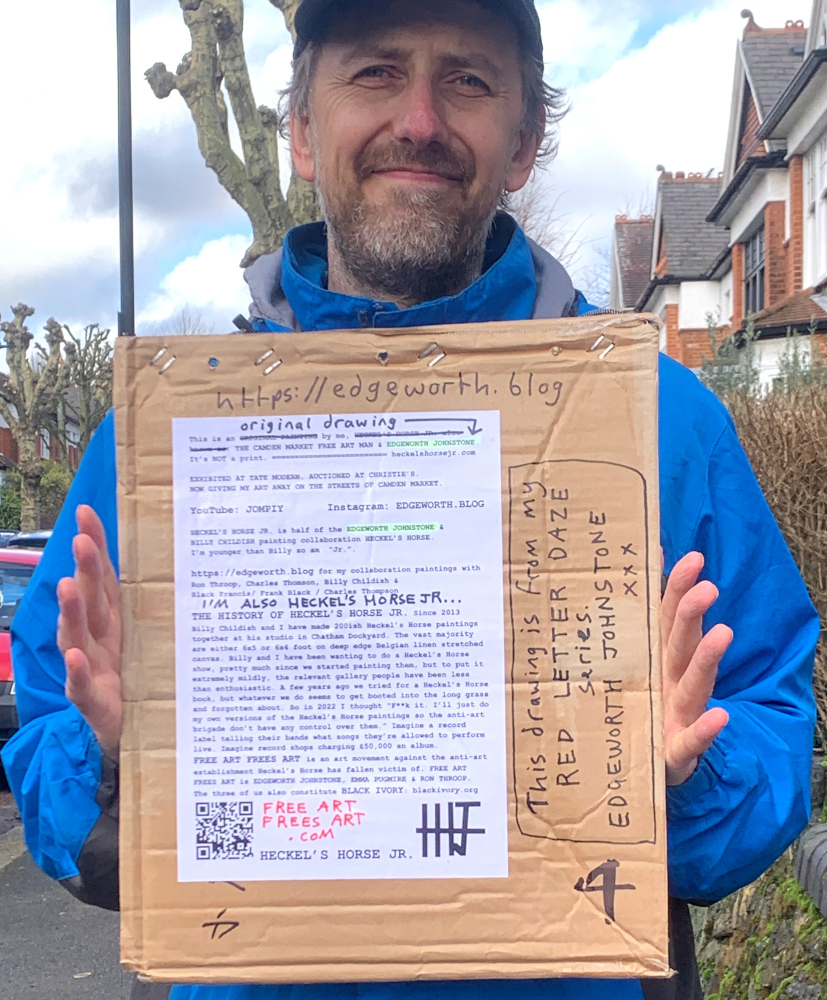 https://edgeworth.blog
original drawing
This is an ORIGINAL PAINTING by me, HECKEL'S HORSE JR. also
known as THE CAMDEN MARKET FREE ART MAN & EDGEWORTH JOHNSTONE
It's NOT a print. heckelshorsejr.com
EXHIBITED AT TATE MODERN. AUCTIONED AT CHRISTIE'S.
NOW GIVING MY ART AWAY ON THE STREETS OF CAMDEN MARKET.
YouTube: JOMPIY Instagram: EDGEWORTH.BLOG
HECKEL'S HORSE JR. is half of the EDGEWORTH JOHNSTONE &
BILLY CHILDISH painting collaboration HECKEL'S HORSE.
I'm younger than Billy so am "Jr.".
https://edgeworth.blog for my collaboration paintings with
Ron Throop, Charles Thomson, Billy Childish &
Black Francis/ Frank Black / Charles Thompson
I'M ALSO HECKEL'S HORSE JR...
THE HISTORY OF HECKEL'S HORSE JR. Since 2013
Billy Childish and I have made 200ish Heckel's Horse paintings
together at his studio in Chatham Dockyard. The vast majority
are either 6x5 or 6x4 foot on deep edge Belgian linen stretched
canvas. Billy and I have been wanting to do a Heckel's Horse
show, pretty much since we started painting them, but to put it
extremely mildly, the relevant gallery people have been less
than enthusiastic. A few years ago we tried for a Heckel's Horse
book, but whatever we do seems to get booted into the long grass
and forgotten about. So in 2022 I thought "F**k it. I'll just do
my own versions of the Heckel's Horse paintings so the anti-art
brigade don't have any control over them." Imagine a record
label telling their bands what songs they're allowed to perform
live. Imagine record shops charging £50,000 an album.
FREE ART FREES ART is an art movement against the anti-art
establishment Heckel's Horse has fallen victim of. FREE ART
FREES ART is EDGEWORTH JOHNSTONE, EMMA PUGMIRE & RON THROOP.
The three of us also constitute BLACK IVORY: blackivory.org
FREE ART
FREES ART
.COM
HECKEL'S HORSE JR.
This drawing is from my
RED LETTER DAZE
series.
EDGEWORTH JOHNSTONE
xxx